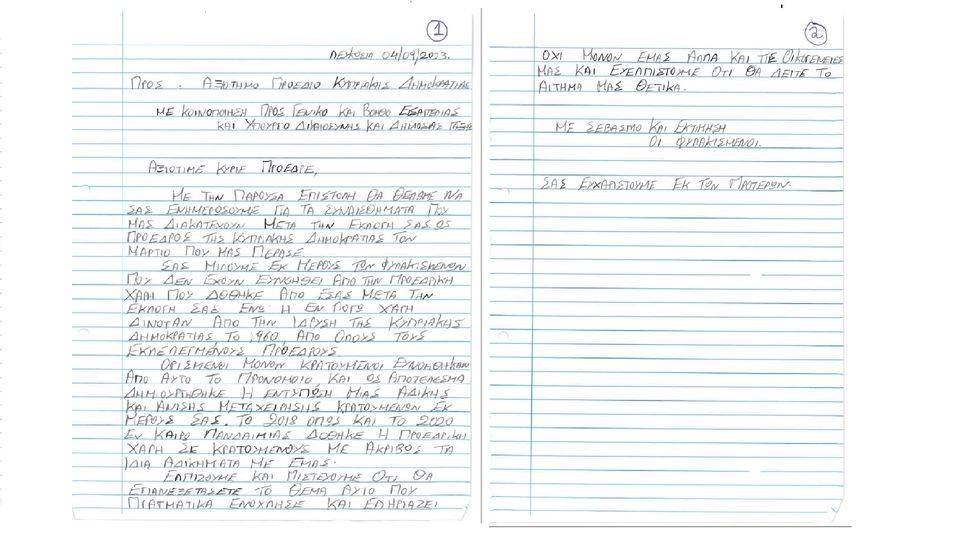 1
ΛΕΥΚΩΣΙΑ 04/09/2023.
ΠΡΟΣ. ΑΞΙΟΤΙΜΟ ΠΡΟΕΔΡΟ ΚΥΠΡΙΑΚΗΣ ΔΗΜΟΚΡΑΤΙΑΣ
ΜΕ ΚΟΙΝΟΠΟΙΗΣΗ ΠΡΟΣ ΓΕΝΙΚΟ ΚΑΙ ΒΟΗΘΟ ΕΙΣΑΓΓΕΛΕΑΣ
ΚΑΙ ΥΠΟΥΡΓΟ ΔΙΚΑΙΟΣΥΝΗΣ ΚΑΙ ΔΗΜΟΣΙΑΣ ΤΑΞΗΣ
ΑΞΙΟΤΙΜΕ ΚΥΡΙΕ ΠΡΟΕΔΡΕ,
ΜΕ ΤΗΝ ΠΑΡΟΥΣΑ ΕΠΙΣΤΟΛΗ ΘΑ ΘΕΛΑΜΕ ΝΑ
ΣΑΣ ΕΝΗΜΕΡΩΣΟΥΜΕ ΓΙΑ ΤΑ ΣΥΝΑΙΣΘΗΜΑΤΑ ΠΟΥ
ΜΑΣ ΔΙΑΚΑΤΕΧΟΥΝ ΜΕΤΑ ΤΗΝ ΕΚΛΟΓΗ ΣΑΣ ΩΣ
ΠΡΟΕΔΡΟΣ ΤΗΣ ΚΥΠΡΙΑΚΗΣ ΔΗΜΟΚΡΑΤΙΑΣ ΤΟΝ
ΜΑΡΤΙΟ ΠΟΥ ΜΑΣ ΠΕΡΑΣΕ.
ΣΑΣ ΜΙΛΟΥΜΕ ΕΚ ΜΕΡΟΥΣ ΤΩΝ ΦΥΛΑΚΙΣΜΕΝΩΝ
ΠΟΥ ΔΕΝ ΕΧΟΥΝ ΕΥΝΟΗΘΕΙ ΑΠΟ ΤΗΝ ΠΡΟΕΔΡΙΚΗ
ΧΑΡΗ ΠΟΥ ΔΟΘΗΚΕ ΑΠΟ ΕΣΑΣ ΜΕΤΑ ΤΗΝ
ΕΚΛΟΓΗ ΣΑΣ ΕΝΩ Η ΕΝ ΛΟΓΩ ΧΑΡΗ
ΔΙΝΟΤΑΝ ΑΠΟ ΤΗΝ ΙΔΡΥΣΗ ΤΗΣ ΚΥΠΡΙΑΚΗΣ
ΔΗΜΟΚΡΑΤΙΑΣ ΤΟ 1960 ΑΠΟ ΟΛΟΥΣ ΤΟΥΣ
ΕΚΛΕΛΕΓΜΕΝΟΥΣ ΠΡΟΕΔΡΟΥΣ
ΟΡΙΣΜΕΝΟΙ ΜΟΝΟΝ ΚΡΑΤΟΥΜΕΝΟΙ ΕΥΝΟΗΘΗΚΑΝ
ΑΠΟ ΑΥΤΟ ΤΟ ΠΡΟΝΟΜΟΙΟ ΚΑΙ ΩΣ ΑΠΟΤΕΛΕΣΜΑ
ΔΗΜΙΟΥΡΓΗΘΗΚΕ Η ΕΝΤΥΠΩΣΗ ΜΙΑΣ ΑΔΙΚΗΣ
ΚΑΙ ΑΝΙΣΗΣ ΜΕΤΑΧΕΙΡΗΣΗΣ ΚΡΑΤΟΥΜΕΝΩΝ ΕΚ
ΜΕΡΟΥΣ ΣΑΣ. ΤΟ 2018 ΟΠΩΣ ΚΑΙ ΤΟ 2020
ΕΝ ΚΑΙΡΩ ΠΑΝΔΑΙΜΙΑΣ ΔΟΘΗΚΕ Η ΠΡΟΕΔΡΙΚΗ
ΧΑΡΗ ΣΕ ΚΡΑΤΟΥΜΕΝΟΥΣ ΜΕ ΑΚΡΙΒΩΣ ΤΑ
ΙΔΙΑ ΑΔΙΚΗΜΑΤΑ ΜΕ ΕΜΑΣ.
ΕΛΠΙΖΟΥΜΕ ΚΑΙ ΠΙΣΤΕΥΟΥΜΕ ΟΤΙ ΘΑ
ΕΠΑΝΕΞΕΤΑΣΕΤΕ ΤΟ ΘΕΜΑ ΑΥΤΟ ΠΟΥ
ΠΡΑΓΜΑΤΙΚΑ ΕΝΟΧΛΗΣΕ ΚΑΙ ΕΠΗΡΙΑΖΕΙ
2
ΟΧΙ ΜΟΝΟΝ ΕΜΑΣ ΑΛΛΑ ΚΑΙ ΤΙΣ ΟΙΚΟΓΕΝΕΙΕΣ
ΜΑΣ ΚΑΙ ΕΥΕΛΠΙΣΤΟΥΜΕ ΟΤΙ ΘΑ ΔΕΙΤΕ ΤΟ
ΑΙΤΗΜΑ ΜΑΣ ΘΕΤΙΚΑ.
ΜΕ ΣΕΒΑΣΜΟ ΚΑΙ ΕΚΤΙΜΗΣΗ
ΟΙ ΦΥΛΑΚΙΣΜΕΝΟΙ.
ΣΑΣ ΕΥΧΑΡΙΣΤΟΥΜΕ ΕΚ ΤΩΝ ΠΡΟΤΕΡΩΝ.